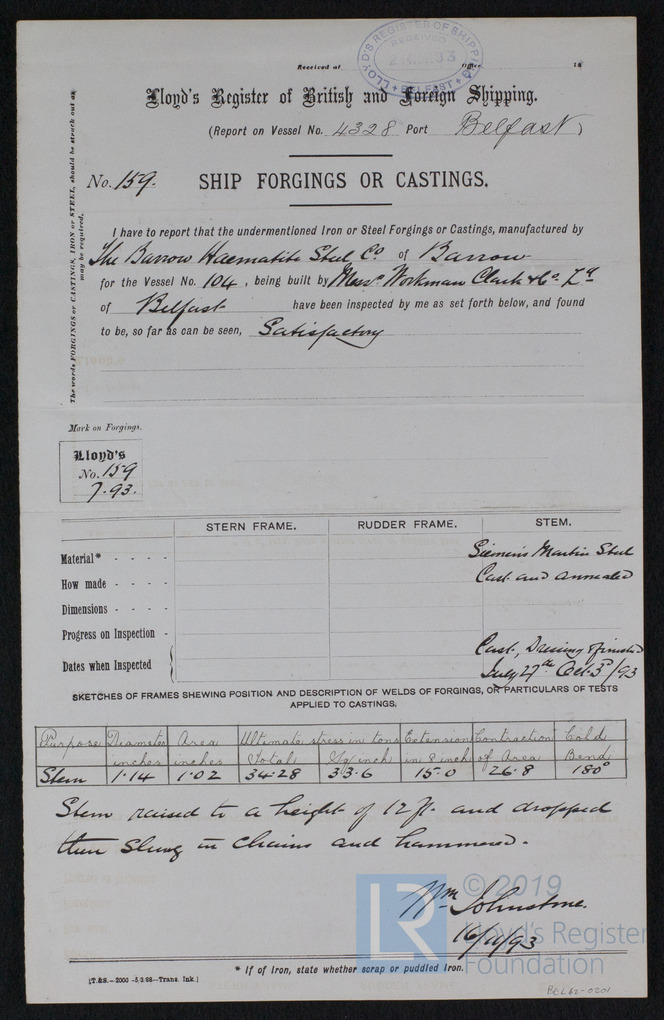 LLOYD'S REGISTER OF SHIPPING
RECEIVED
BELFAST
Received at Office 18
Lloyd's Register of British and Foreign Shipping.
(Report on Vessel No. 4328 Port Belfast)
No. 159. SHIP FORGINGS OR CASTINGS.
The words FORGINGS or CASTINGS, IRON or STEEL, should be struck out as may be required.
I have to report that the undermentioned Iron or Steel Forgings or Castings, manufactured by
The Barrow Haematite Steel Co of Barrow
for the Vessel No. 104, being built by Messrs Workman Clark & Co. Ld
of Belfast have been inspected by me as set forth below, and found
to be, so far as can be seen, Satisfactory
Mark on Forgings.
Lloyd's
No. 159
7.93.
STERN FRAME. RUDDER FRAME. STEM.
Material* - - - - Siemens Martin Steel
How made - - - - Cast and annealed
Dimensions - - - -
Progress on Inspection - Cast, Dressing & finished
Dates when Inspected { July 27th Oct. 3rd/93
SKETCHES OF FRAMES SHEWING POSITION AND DESCRIPTION OF WELDS OF FORGINGS, OR PARTICULARS OF TESTS
APPLIED TO CASTINGS.
Purpose Diameter Area Ultimate stress in tons Extension Contraction Cold
inches inches Total Sq inch in 8 inch of Area Bend
Stem 1.14 1.02 34.28 33.6 15.0 26.8 180°
Stem raised to a height of 12 ft. and dropped
then slung in chains and hammered.
Wm Johnstone.
16/11/93
LR © 2019
Lloyd's Register
Foundation
* If of Iron, state whether scrap or puddled Iron.
[T.&S.—2000—5/3/88—Trans. Ink.]
BEL62-0201